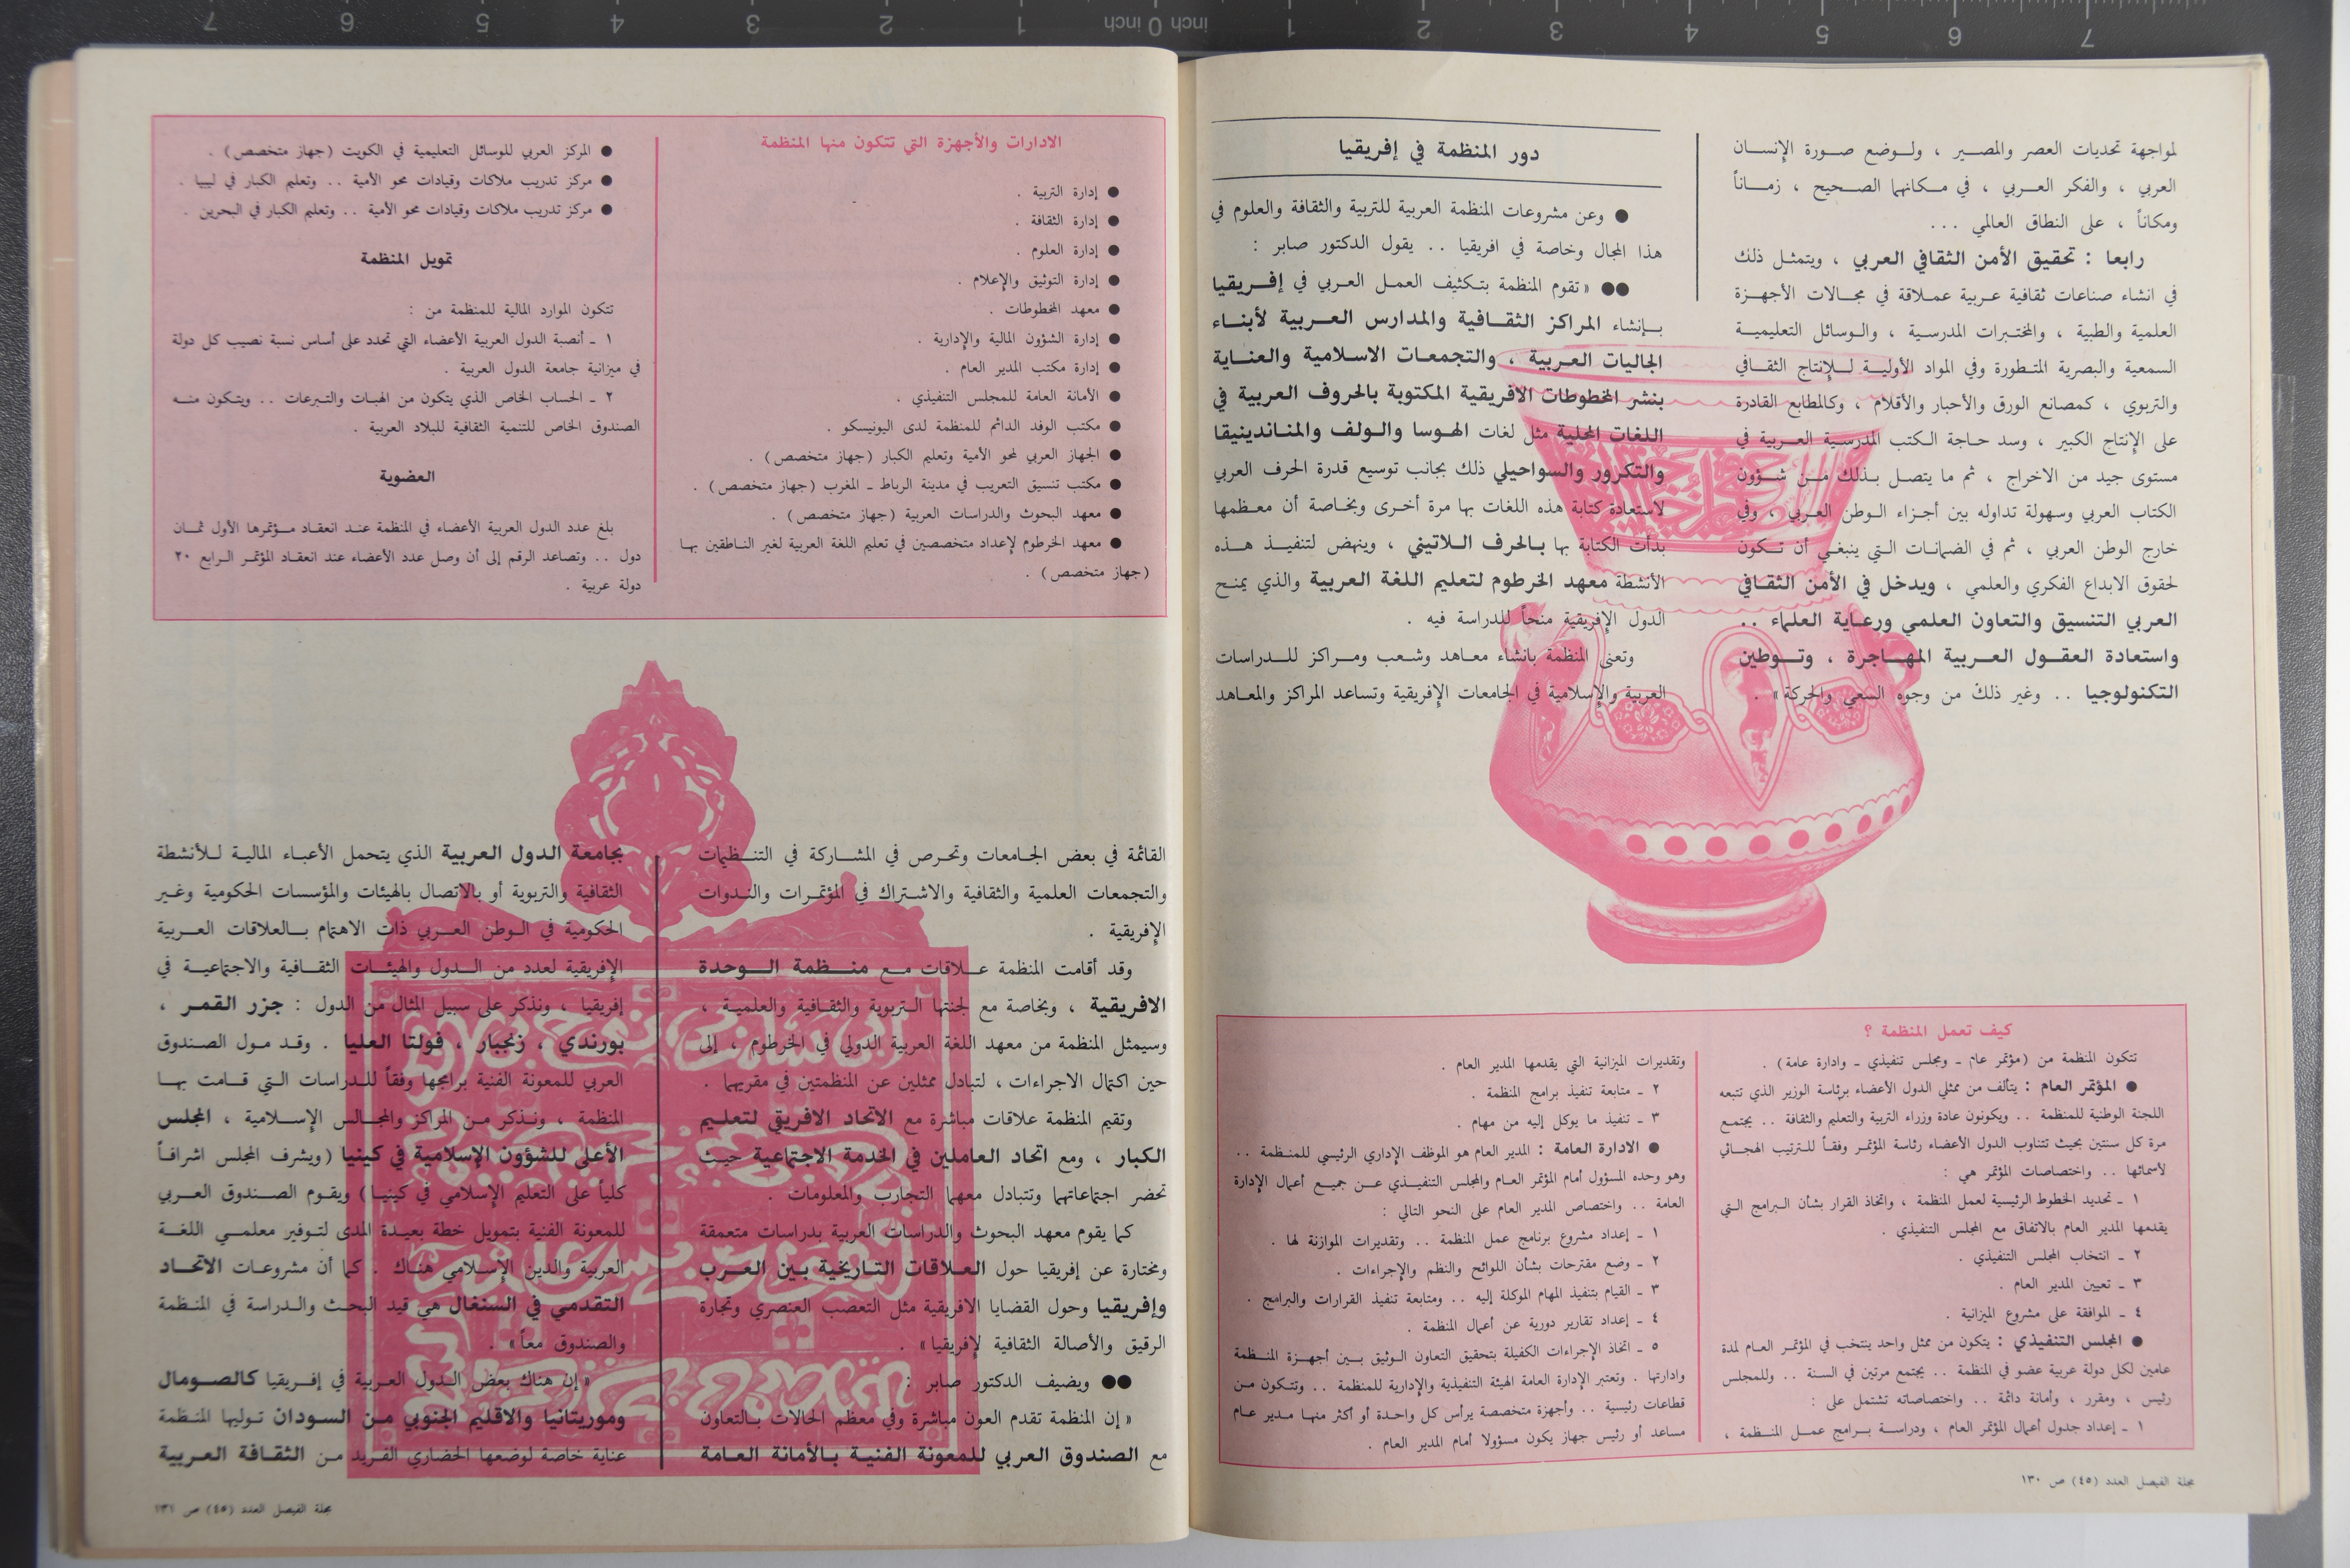 لمواجهة تحديات العصر والمصير ، ولوضع صورة الإنسان
العربي ، والفكر العربي ، في مكانهما الصحيح ، زماناً
ومكاناً ، على النطاق العالمي ...
رابعا : تحقيق الأمن الثقافي العربي ، ويتمثل ذلك
في انشاء صناعات ثقافية عربية عملاقة في مجالات الأجهزة
العلمية والطبية ، والمختبرات المدرسية ، والوسائل التعليمية
السمعية والبصرية المتطورة وفي المواد الأولية للإنتاج الثقافي
والتربوي ، كمصانع الورق والأحبار والأقلام ، وكالمطابع القادرة
على الإنتاج الكبير ، وسد حاجة الكتب المدرسية العربية في
مستوى جيد من الاخراج ، ثم ما يتصل بذلك من شؤون
الكتاب العربي وسهولة تداوله بين أجزاء الوطن العربي ، وفي
خارج الوطن العربي ، ثم في الضمانات التي ينبغي أن تكون
لحقوق الابداع الفكري والعلمي ، ويدخل في الأمن الثقافي
العربي التنسيق والتعاون العلمي ورعاية العلماء ..
واستعادة العقول العربية المهاجرة ، وتوطين
التكنولوجيا .. وغير ذلك من وجوه السعي والحركة» .
دور المنظمة في إفريقيا
● وعن مشروعات المنظمة العربية للتربية والثقافة والعلوم في
هذا المجال وخاصة في افريقيا .. يقول الدكتور صابر :
●● «تقوم المنظمة بتكثيف العمل العربي في إفريقيا
بإنشاء المراكز الثقافية والمدارس العربية لأبناء
الجاليات العربية ، والتجمعات الاسلامية والعناية
بنشر المخطوطات الافريقية المكتوبة بالحروف العربية في
اللغات المحلية مثل لغات الهوسا والولف والمناندينيقا
والتكرور والسواحيلي ذلك بجانب توسيع قدرة الحرف العربي
لاستعادة كتابة هذه اللغات بها مرة أخرى وبخاصة أن معظمها
بدأت الكتابة بها بالحرف اللاتيني ، وينهض لتنفيذ هذه
الأنشطة معهد الخرطوم لتعليم اللغة العربية والذي يمنح
الدول الإفريقية منحاً للدراسة فيه .
وتعنى المنظمة بانشاء معاهد وشعب ومراكز للدراسات
العربية والإسلامية في الجامعات الإفريقية وتساعد المراكز والمعاهد
كيف تعمل المنظمة ؟
تتكون المنظمة من (مؤتمر عام ـ ومجلس تنفيذي ـ وادارة عامة) .
● المؤتمر العام : يتألف من ممثلي الدول الأعضاء برئاسة الوزير الذي تتبعه
اللجنة الوطنية للمنظمة .. ويكونون عادة وزراء التربية والتعليم والثقافة .. يجتمع
مرة كل سنتين بحيث تتناوب الدول الأعضاء رئاسة المؤتمر وفقاً للترتيب الهجائي
لأسمائها .. واختصاصات المؤتمر هي :
١ ـ تحديد الخطوط الرئيسية لعمل المنظمة ، واتخاذ القرار بشأن البرامج التي
يقدمها المدير العام بالاتفاق مع المجلس التنفيذي .
٢ ـ انتخاب المجلس التنفيذي .
٣ ـ تعيين المدير العام .
٤ ـ الموافقة على مشروع الميزانية .
● المجلس التنفيذي : يتكون من ممثل واحد ينتخب في المؤتمر العام لمدة
عامين لكل دولة عربية عضو في المنظمة .. يجتمع مرتين في السنة .. وللمجلس
رئيس ، ومقرر ، وأمانة دائمة .. واختصاصاته تشتمل على :
١ ـ إعداد جدول أعمال المؤتمر العام ، ودراسة برامج عمل المنظمة ،
وتقديرات الميزانية التي يقدمها المدير العام .
٢ ـ متابعة تنفيذ برامج المنظمة .
٣ ـ تنفيذ ما يوكل إليه من مهام .
● الادارة العامة : المدير العام هو الموظف الإداري الرئيسي للمنظمة ..
وهو وحده المسؤول أمام المؤتمر العام والمجلس التنفيذي عن جميع أعمال الإدارة
العامة .. واختصاص المدير العام على النحو التالي :
١ ـ إعداد مشروع برنامج عمل المنظمة .. وتقديرات الموازنة لها .
٢ ـ وضع مقترحات بشأن اللوائح والنظم والإجراءات .
٣ ـ القيام بتنفيذ المهام الموكلة إليه .. ومتابعة تنفيذ القرارات والبرامج .
٤ ـ إعداد تقارير دورية عن أعمال المنظمة .
٥ ـ اتخاذ الإجراءات الكفيلة بتحقيق التعاون الوثيق بين أجهزة المنظمة
وادارتها . وتعتبر الإدارة العامة الهيئة التنفيذية والإدارية للمنظمة .. وتتكون من
قطاعات رئيسية .. وأجهزة متخصصة يرأس كل واحدة أو أكثر منها مدير عام
مساعد أو رئيس جهاز يكون مسؤولا أمام المدير العام .
مجلة الفيصل العدد (٤٥) ص ١٣٠
الادارات والأجهزة التي تتكون منها المنظمة
● إدارة التربية .
● إدارة الثقافة .
● إدارة العلوم .
● إدارة التوثيق والإعلام .
● معهد المخطوطات .
● إدارة الشؤون المالية والإدارية .
● إدارة مكتب المدير العام .
● الأمانة العامة للمجلس التنفيذي .
● مكتب الوفد الدائم للمنظمة لدى اليونيسكو .
● الجهاز العربي لمحو الأمية وتعليم الكبار (جهاز متخصص) .
● مكتب تنسيق التعريب في مدينة الرباط ـ المغرب (جهاز متخصص) .
● معهد البحوث والدراسات العربية (جهاز متخصص) .
● معهد الخرطوم لإعداد متخصصين في تعليم اللغة العربية لغير الناطقين بها
(جهاز متخصص) .
● المركز العربي للوسائل التعليمية في الكويت (جهاز متخصص) .
● مركز تدريب ملاكات وقيادات محو الأمية .. وتعليم الكبار في ليبيا .
● مركز تدريب ملاكات وقيادات محو الأمية .. وتعليم الكبار في البحرين .
تمويل المنظمة
تتكون الموارد المالية للمنظمة من :
١ ـ أنصبة الدول العربية الأعضاء التي تحدد على أساس نسبة نصيب كل دولة
في ميزانية جامعة الدول العربية .
٢ ـ الحساب الخاص الذي يتكون من الهبات والتبرعات .. ويتكون منه
الصندوق الخاص للتنمية الثقافية للبلاد العربية .
العضوية
بلغ عدد الدول العربية الأعضاء في المنظمة عند انعقاد مؤتمرها الأول ثمان
دول .. وتصاعد الرقم إلى أن وصل عدد الأعضاء عند انعقاد المؤتمر الرابع ٢٠
دولة عربية .
القائمة في بعض الجامعات وتحرص في المشاركة في التنظيمات
والتجمعات العلمية والثقافية والاشتراك في المؤتمرات والندوات
الإفريقية .
وقد أقامت المنظمة علاقات مع منظمة الوحدة
الافريقية ، وبخاصة مع لجنتها التربوية والثقافية والعلمية ،
وسيمثل المنظمة من معهد اللغة العربية الدولي في الخرطوم ، إلى
حين اكتمال الاجراءات ، لتبادل ممثلين عن المنظمتين في مقريهما .
وتقيم المنظمة علاقات مباشرة مع الاتحاد الافريقي لتعليم
الكبار ، ومع اتحاد العاملين في الخدمة الاجتماعية حيث
تحضر اجتماعاتهما وتتبادل معهما التجارب والمعلومات .
كما يقوم معهد البحوث والدراسات العربية بدراسات متعمقة
ومختارة عن إفريقيا حول العلاقات التاريخية بين العرب
وإفريقيا وحول القضايا الافريقية مثل التعصب العنصري وتجارة
الرقيق والأصالة الثقافية لإفريقيا» .
●● ويضيف الدكتور صابر :
«إن المنظمة تقدم العون مباشرة وفي معظم الحالات بالتعاون
مع الصندوق العربي للمعونة الفنية بالأمانة العامة
بجامعة الدول العربية الذي يتحمل الأعباء المالية للأنشطة
الثقافية والتربوية أو بالاتصال بالهيئات والمؤسسات الحكومية وغير
الحكومية في الوطن العربي ذات الاهتمام بالعلاقات العربية
الإفريقية لعدد من الدول والهيئات الثقافية والاجتماعية في
إفريقيا ، ونذكر على سبيل المثال من الدول : جزر القمر ،
بورندي ، زنجبار ، فولتا العليا . وقد مول الصندوق
العربي للمعونة الفنية برامجها وفقاً للدراسات التي قامت بها
المنظمة ، ونذكر من المراكز والمجالس الإسلامية ، المجلس
الأعلى للشؤون الإسلامية في كينيا (ويشرف المجلس اشرافاً
كلياً على التعليم الإسلامي في كينيا) ويقوم الصندوق العربي
للمعونة الفنية بتمويل خطة بعيدة المدى لتوفير معلمي اللغة
العربية والدين الإسلامي هناك . كما أن مشروعات الاتحاد
التقدمي في السنغال هي قيد البحث والدراسة في المنظمة
والصندوق معاً» .
«إن هناك بعض الدول العربية في إفريقيا كالصومال
وموريتانيا والاقليم الجنوبي من السودان توليها المنظمة
عناية خاصة لوضعها الحضاري الفريد من الثقافة العربية
مجلة الفيصل العدد (٤٥) ص ١٣١
7 6 5 4 3 2 1 inch 0 inch 1 2 3 4 5 6 7